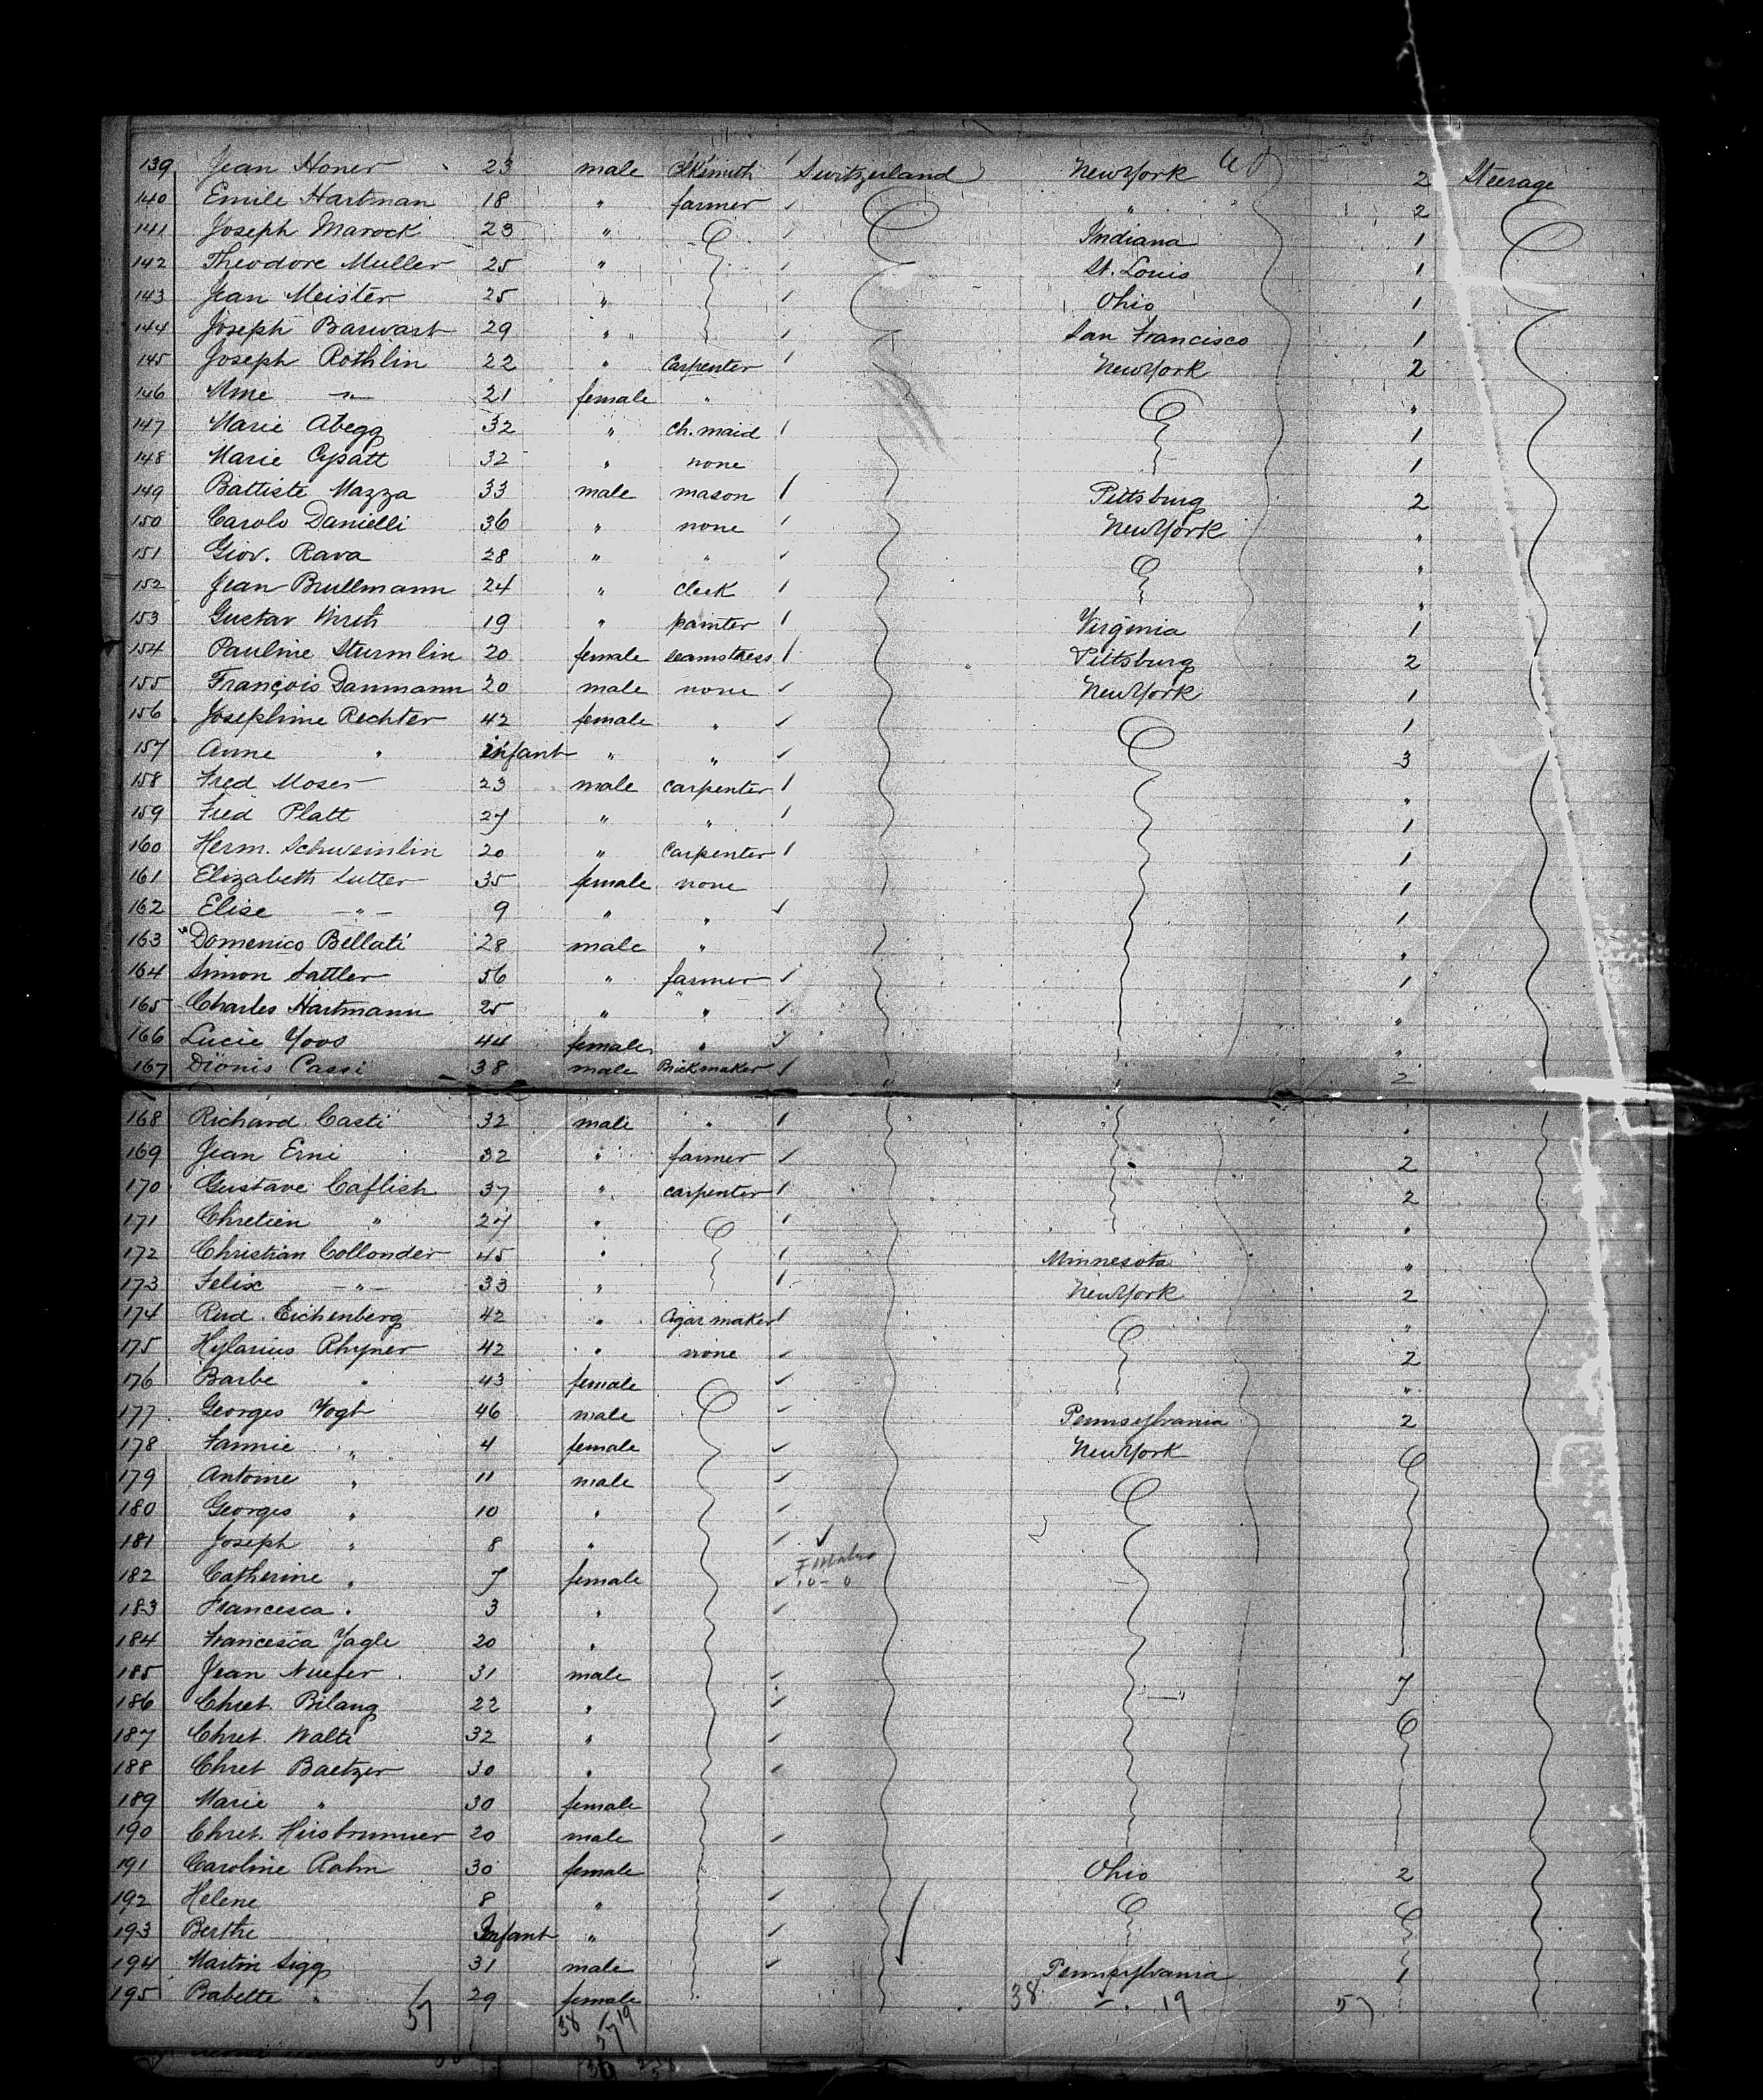 139 Jean Honer 23 male Blksmith Switzerland New York 2 Steerage
140 Emile Hartman 18 " farmer " 2
141 Joseph Marock 23 " Indiana 1
142 Theodore Muller 25 " St. Louis 1
143 Jean Meister 25 " Ohio 1
144 Joseph Barwart 29 " San Francisco 1
145 Joseph Rothlin 22 " Carpenter New York 2
146 Mme -"- 21 female " "
147 Marie Abegg 32 " ch. maid 1
148 Marie Cysatt 32 " none 1
149 Battiste Mazza 33 male mason Pittsburg 2
150 Carolo Danielli 36 " none New York "
151 Giov. Rava 28 " " "
152 Jean Brullmann 24 " clerk "
153 Gustav Wirth 19 " painter Virginia 1
154 Pauline Sturmlin 20 female seamstress Pittsburg 2
155 François Danmann 20 male none New York 1
156 Josephine Rechter 42 female " 1
157 Anne " infant " " 3
158 Fred Moser 23 male carpenter "
159 Fred Platt 27 " " 1
160 Herm. Schweinlin 20 " Carpenter 1
161 Elizabeth Sutter 35 female none 1
162 Elise -"- 9 " " 1
163 Domenico Bellati 28 male " "
164 Simon Sattler 56 " farmer 1
165 Charles Hartmann 25 " " "
166 Lucie Yoos 44 female " "
167 Dionis Cassi 38 male Brickmaker 2
168 Richard Casti 32 male " "
169 Jean Erni 32 " farmer 2
170 Gustave Caflisch 37 " carpenter 2
171 Chretien " 27 " "
172 Christian Collonder 45 " Minnesota "
173 Felix -"- 33 " New York 2
174 Rud. Eichenberg 42 " Cigar maker "
175 Hylarius Rhyner 42 " none 2
176 Barbe " 43 female "
177 Georges Vogt 46 male Pennsylvania 2
178 Fannie " 4 female New York
179 Antoine " 11 male
180 Georges " 10 "
181 Joseph " 8 "
182 Catherine " 7 female
183 Francesca " 3 "
184 Francesca Yagle 20 "
185 Jean Nuefer 31 male 7
186 Chret. Bilang 22 "
187 Chret. Walti 32 "
188 Chret Baetzer 30 "
189 Marie " 30 female
190 Chret. Hirsbrunner 20 male
191 Caroline Rahm 30 female Ohio 2
192 Helene 8 "
193 Berthe Infant "
194 Martin Sigg 31 male Pennsylvania 1
195 Babette " 29 female
57 38 19 38 19 57